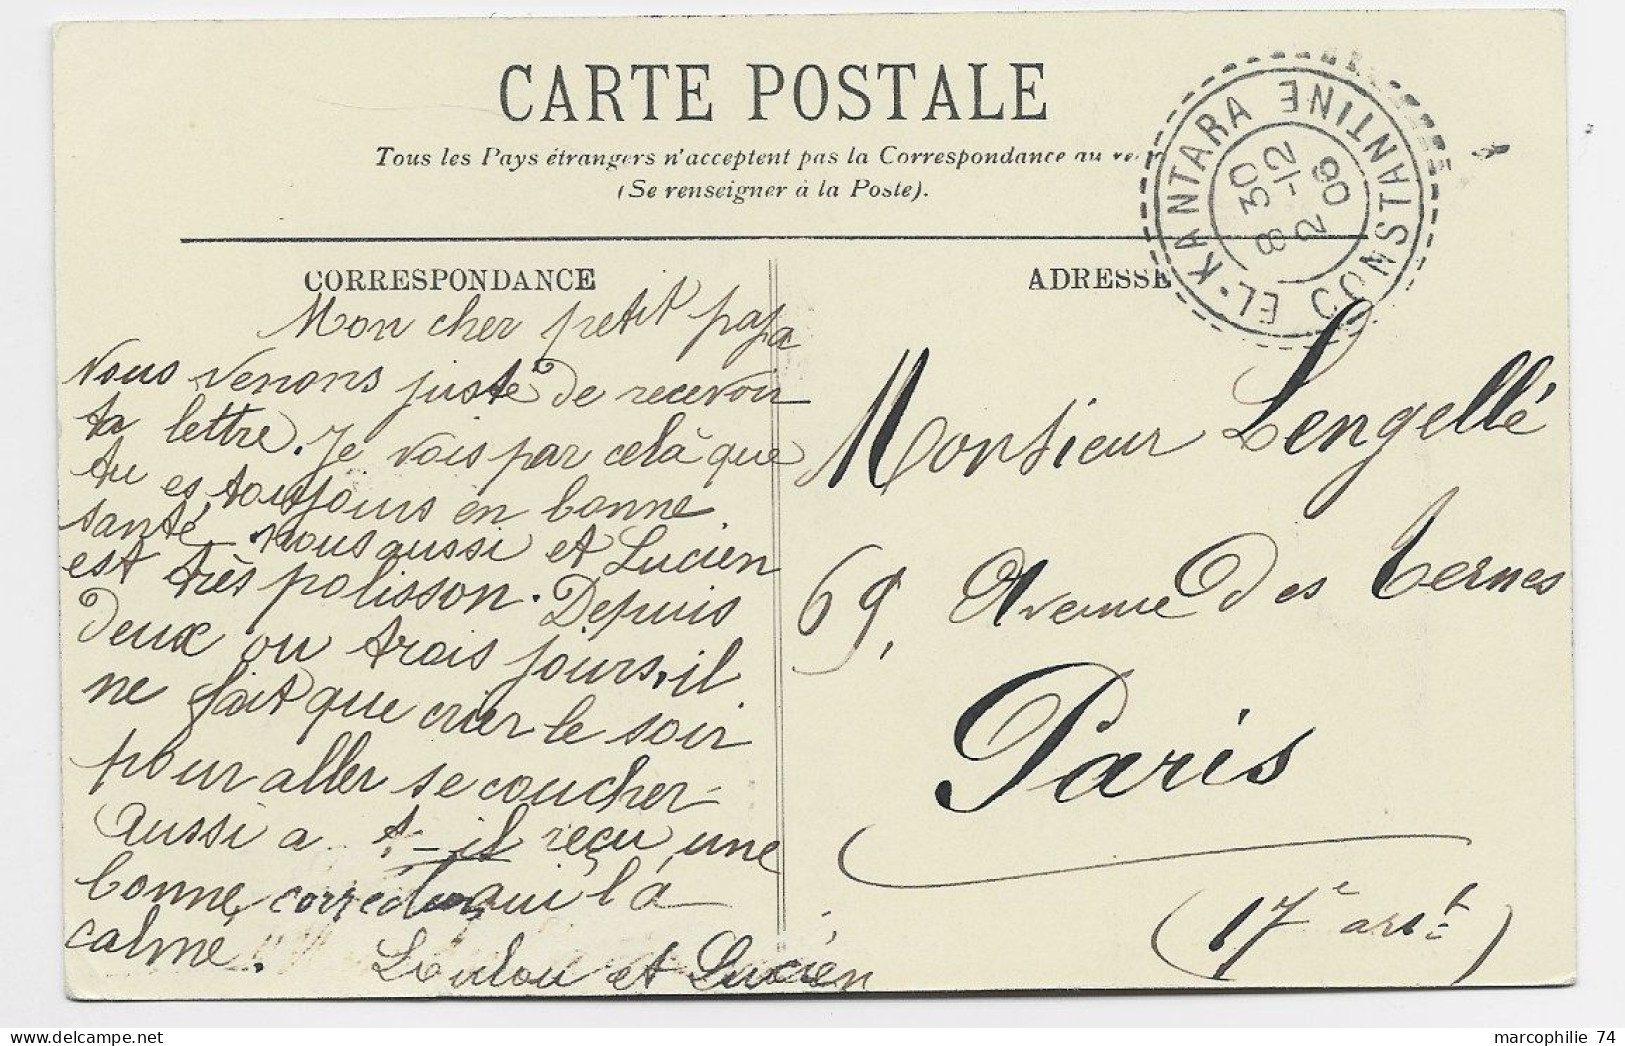 CARTE POSTALE
Tous les Pays étrangers n'acceptent pas la Correspondance au
(Se renseigner à la Poste).
EL-KANTARA CONSTANTINE
8 30
2 -12
06
CORRESPONDANCE
Mon cher petit papa
Nous venons juste de recevoir
ta lettre. Je vois par celà que
tu es toujours en bonne
santé, nous aussi et Lucien
est très polisson. Depuis
deux ou trois jours, il
ne fait que crier le soir
pour aller se coucher
aussi a-t-il reçu une
bonne correction qui l'a
calmé.
Loulou et Lucien
ADRESSE
Monsieur Lengellé
69, Avenue des Ternes
Paris
(17e arrt)
marcophilie 74